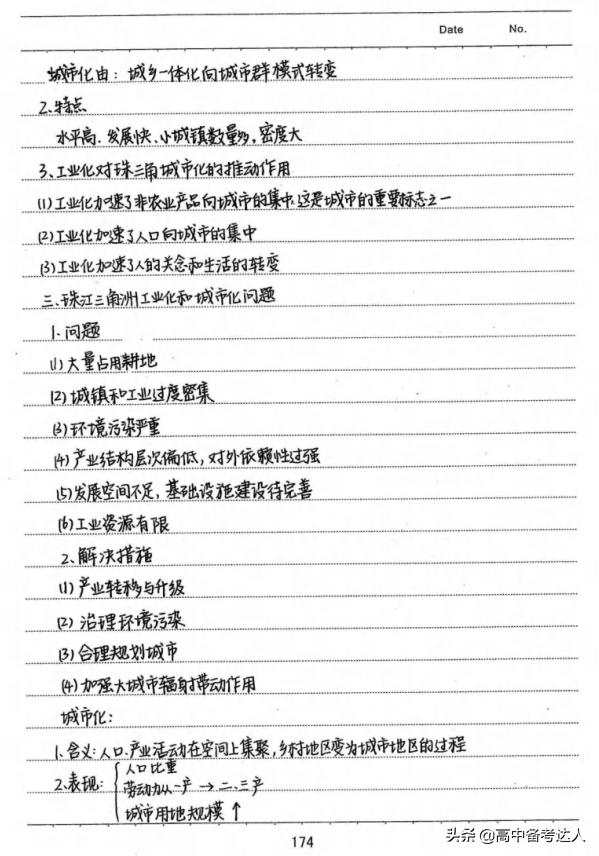 Date No.
城市化由：城乡一体化向城市群模式转变
2.特点
水平高、发展快、小城镇数量多，密度大
3、工业化对珠三角城市化的推动作用
(1)工业化加速了非农业产品向城市的集中.这是城市的重要标志之一
(2)工业化加速了人口向城市的集中
(3)工业化加速了人的关念和生活的转变
三、珠江三角洲工业化和城市化问题
1.问题
(1)大量占用耕地
(2)城镇和工业过度密集
(3)环境污染严重
(4)产业结构层次偏低，对外依赖性过强
(5)发展空间不足，基础设施建设待完善
(6)工业资源有限
2、解决措施
(1)产业转移与升级
(2)治理环境污染
(3)合理规划城市
(4)加强大城市辐射带动作用
城市化：
1.含义：人口.产业活动在空间上集聚，乡村地区变为城市地区的过程
2.表现：
人口比重
劳动力从一产→二、三产
城市用地规模↑
174
头条@高中备考达人